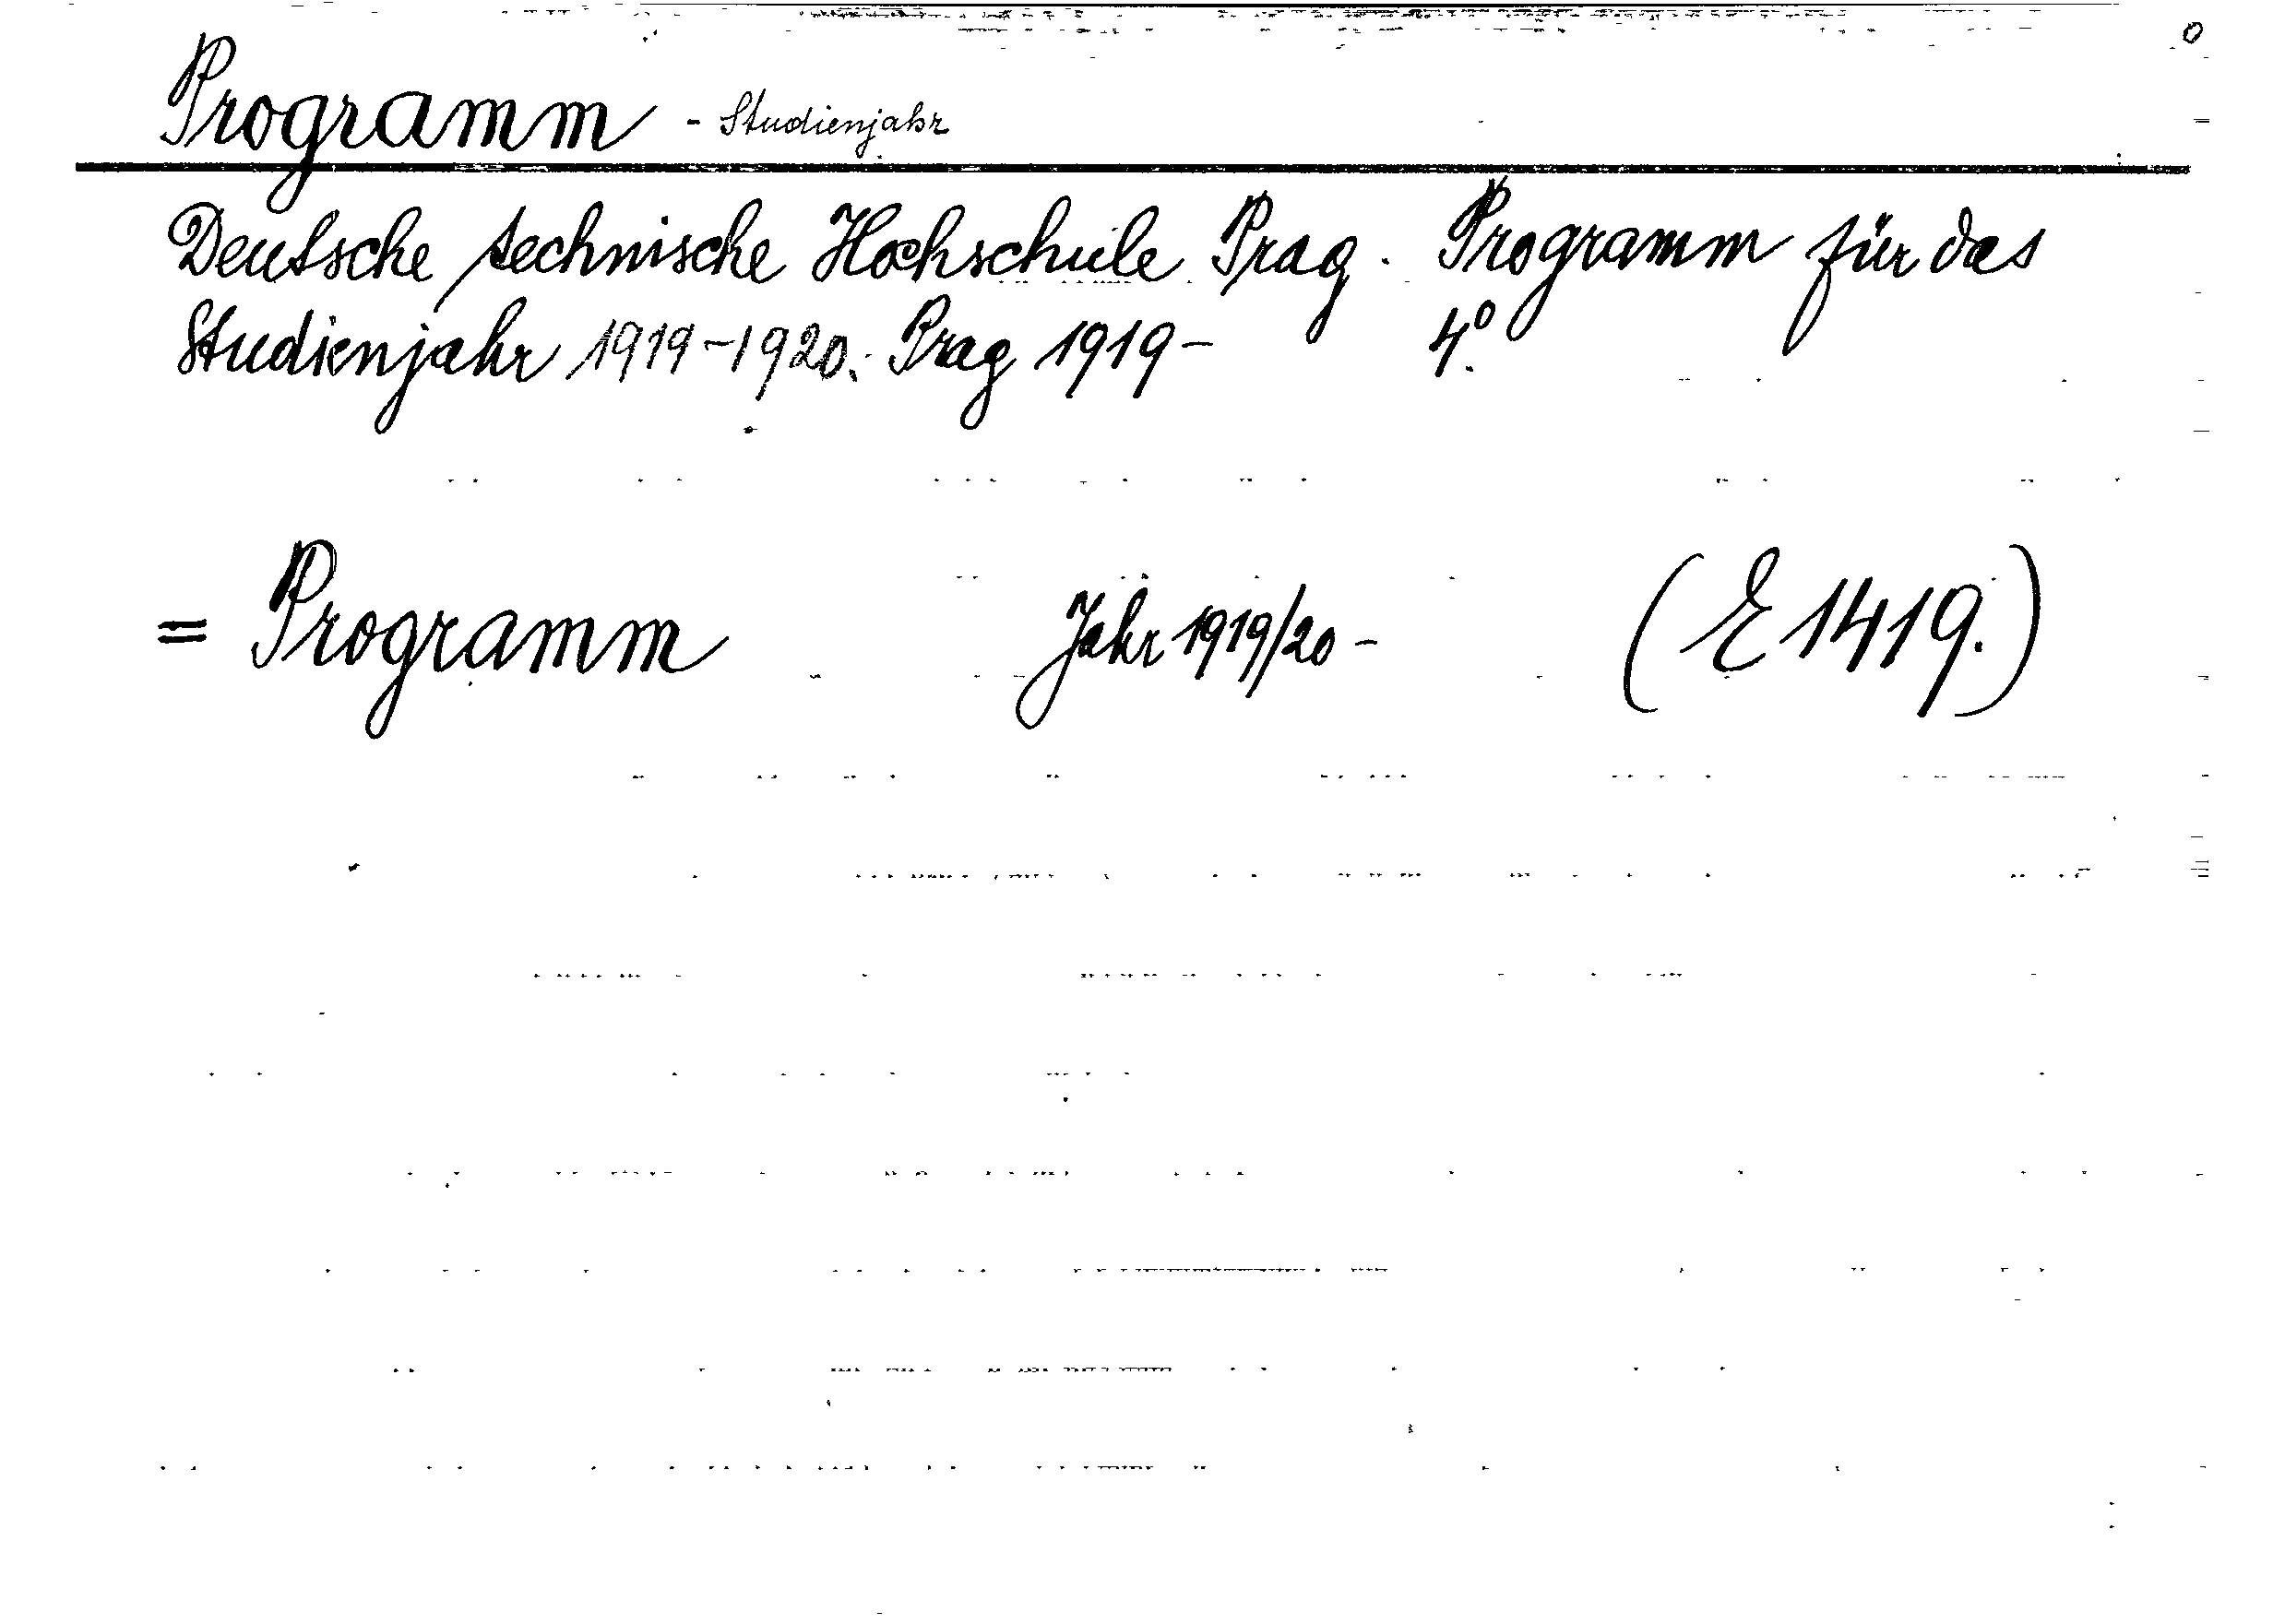 Programm - Studienjahr
Deutsche technische Hochschule Prag. Programm für das
Studienjahr 1919-1920. Prag 1919- 4°.
= Programm Jahr 1919/20- (E 1419.)